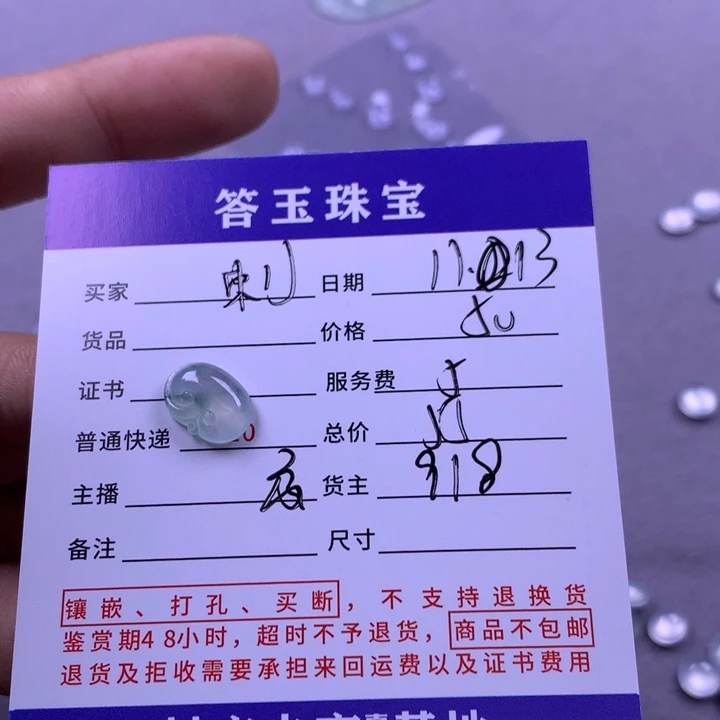 答玉珠宝
买家 日期 11. 13
货品 价格 50
证书 服务费 5
普通快递 0 总价
主播 货主 918
备注 尺寸
镶嵌、打孔、买断,不支持退换货
鉴赏期48小时,超时不予退货,商品不包邮
退货及拒收需要承担来回运费以及证书费用